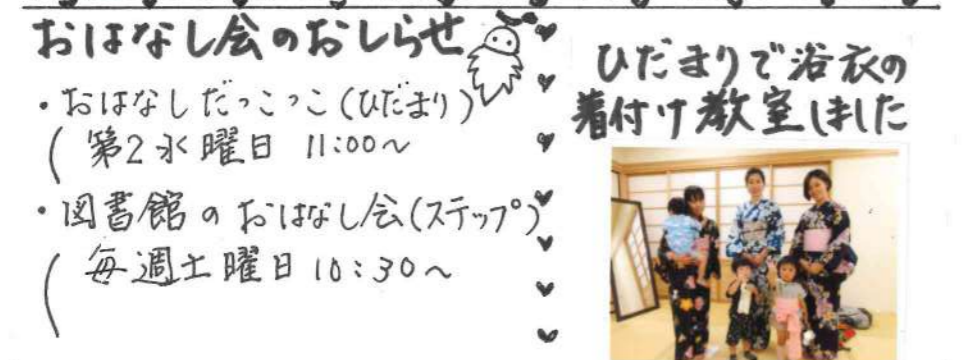 おはなし会のおしらせ
・おはなしだっこっこ(ひだまり)
(第2水曜日 11:00～
・図書館のおはなし会(ステップ)
(毎週土曜日10:30～
ひだまりで浴衣の
着付け教室しました